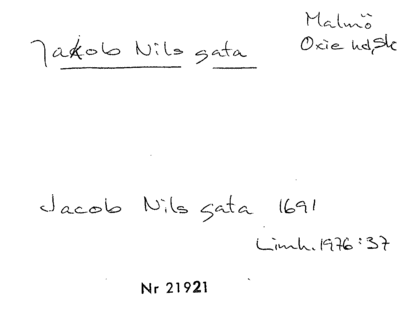 Jakob Nils gata
Malmö
Oxie hd, Sk
Jacob Nils gata 1691
Limh. 1976:37
Nr 21921